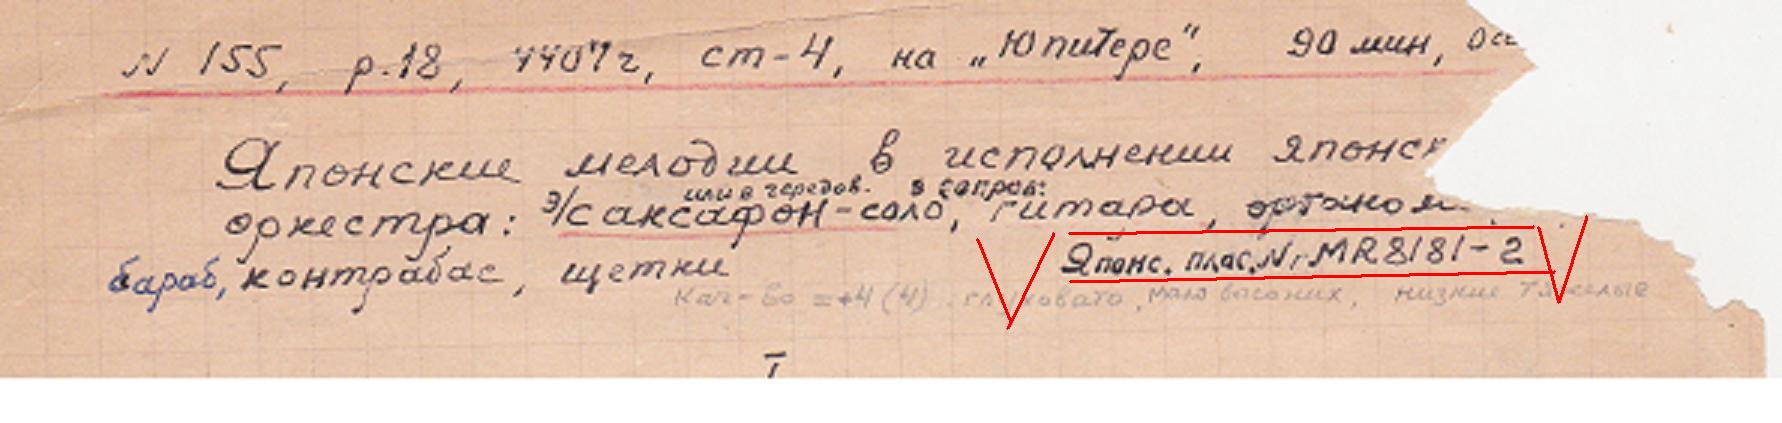 N 155, р.18, 4407г, ст-4, на „Юпитере", 90 мин,
Японские мелодии в исполнении японск
или в черeдов. в сопров:
оркестра: э/саксафон-соло, гитара,
Японс. плас. Nr MR8181-2
бараб, контрабас, щетки
кач-во =+4(4). глуховато, мало высоких, низкие тяжелые
I